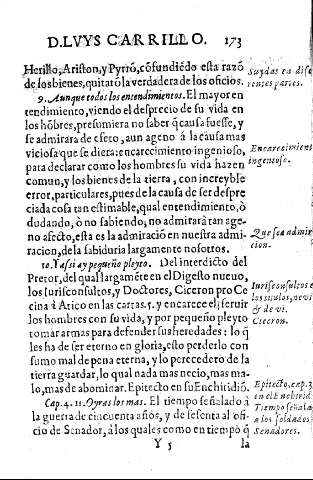 D. LVYS CARRILLO. 173
Herillo, Ariston, y Pyrró, cõfundiẽdo esta razõ
de los bienes, quitarõ la verdadera de los oficios.
9. Aunque todos los entendimientos. El mayor en
tendimiento, viendo el desprecio de su vida en
los hõbres, presumiera no saber q̃ causa fuesse, y
se admirara de efeto, aun ageno á la causa mas
viciosa que se diera: encarecimiento ingenioso,
para declarar como los hombres su vida hazen
comun, y los bienes de la tierra, con increyble
error, particulares, pues de la causa de ser despre
ciada cosa tan estimable, qual entendimiento, ò
dudando, ò no sabiendo, no admirarà tan age-
no afecto, esta es la admiraciõ en nuestra admi-
racion, de la sabiduria largamente nosotros.
10. Y assi ay pequeño pleyto. Del interdicto del
Pretor, del qual largamẽte en el Digesto nueuo,
los Iurisconsultos, y Doctores, Ciceron pro Ce
cina à Atico en las cartas. 5. y encarece el seruir
los hombres con su vida, y por pequeño pleyto
tomar armas para defender sus heredades: lo q̃
les ha de ser eterno en gloria, esto perderlo con
sumo mal de pena eterna, y lo perecedero de la
tierra guardar, lo qual nada mas necio, mas ma-
lo, mas de abominar. Epitecto en su Enchiridiõ.
Cap. 4. 11. Oyras los mas. El tiempo señalado à
la guerra de cincuenta años, y de sesenta al ofi-
cio de Senador, á los quales como en tiempo q̃
Y 5 la
Suydas en dife
rentes partes.
Encarecimient
ingenioso.
Que sea admir
cion.
Iurisconsultos e
los titulos, de vi
& de vi.
Ciceron.
Epitecto, cap. 3
en el Enchirid
Tiempo señala
a los soldados
Senadores.